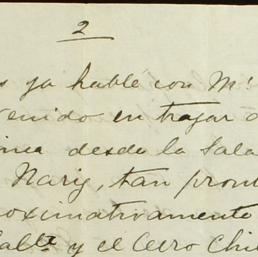 2
s ya hablé con Mr
enido en trazar
inea desde la Sala
Narig, tan pront
oximativamente
alte y el Cerro Chi